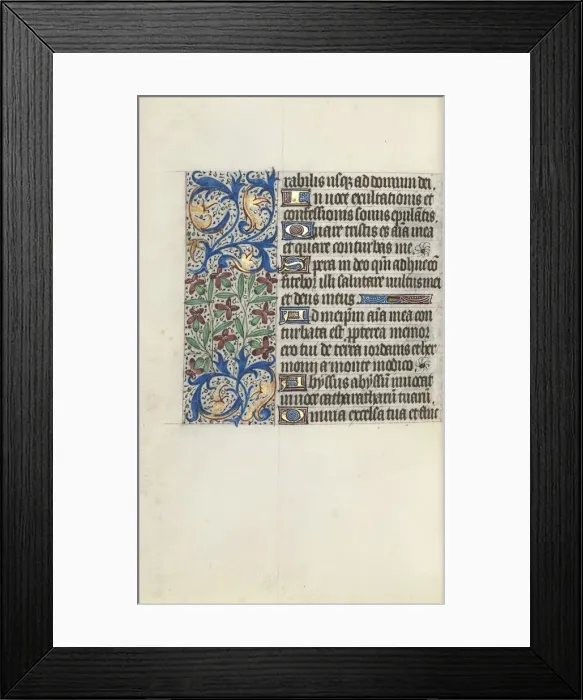 rabilis usq3 ad domum dei.
In voce exultationis et
confessionis sonus epulātis.
Quare tristis es aīa mea
et quare conturbas me.
Spera in deo qm̄ adhuc cō
fitebor illi salutare vultus mei
et deus meus.
Ad meip̄m aīa mea con
turbata est ꝓpterea memor
ero tui de terra iordanis et her
monii a monte modico.
Abyssus abyssū invocat
in voce catharatharū tuarū.
Omnia excelsa tua et fluc